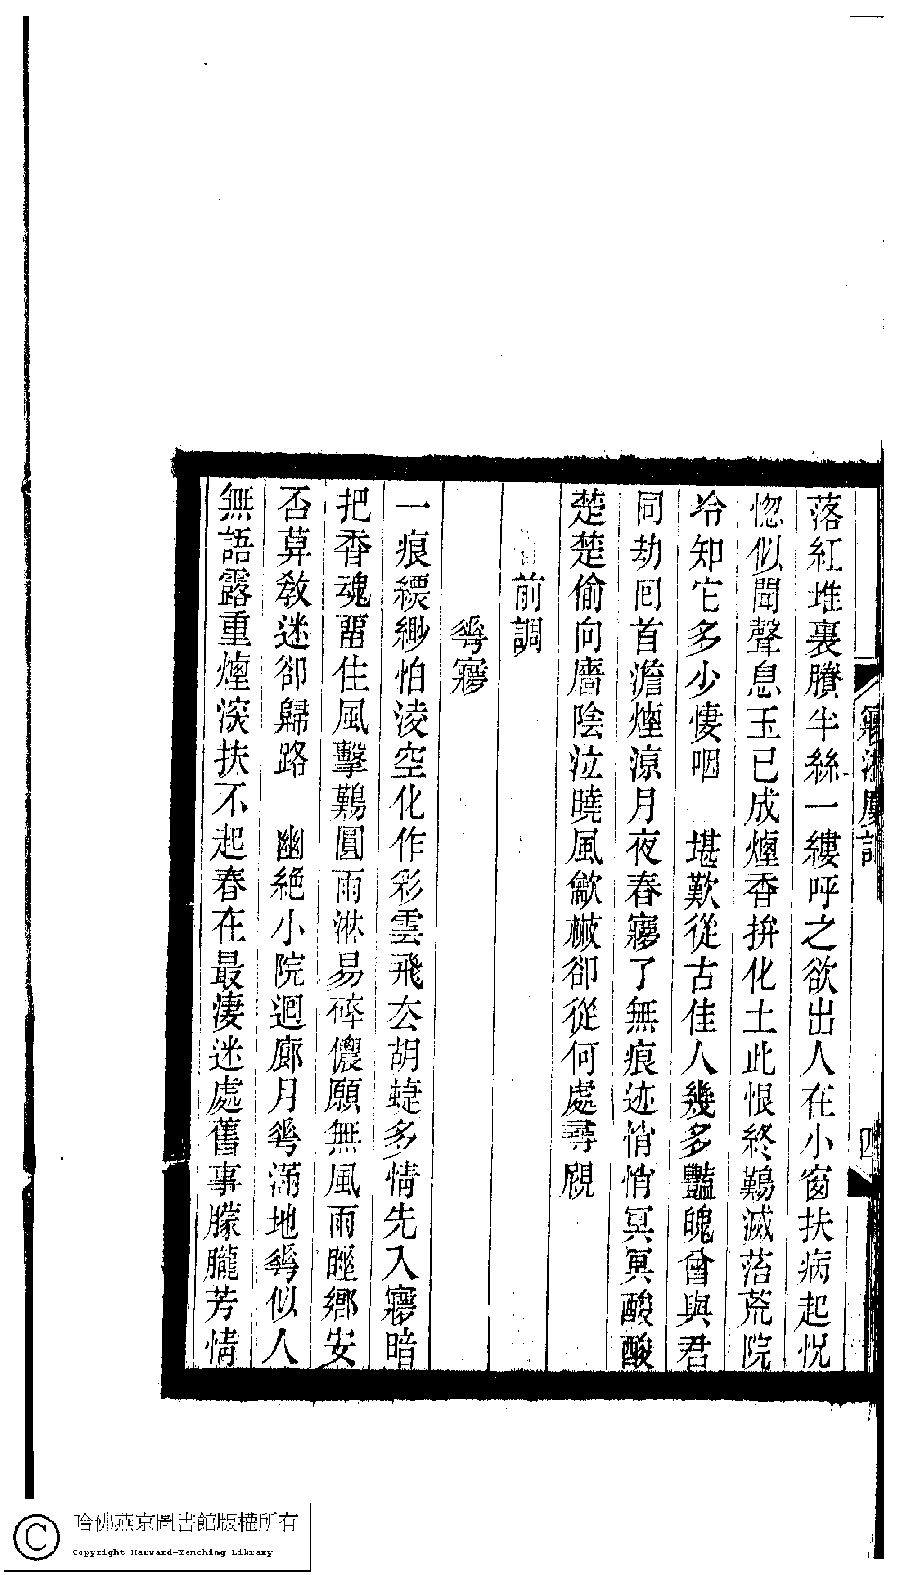 落紅堆裏賸半絲一縷呼之欲出人在小窗扶病起怳
惚似聞聲息玉已成煙香拚化土此恨終難滅落荒院
冷知它多少悽咽　堪歎從古佳人幾多豔魄曾與君
同劫囘首澹煙涼月夜春寱了無痕迹悄悄冥冥酸酸
楚楚偷向牆陰泣曉風敵檝卻從何處尋覛
前調
蕚寱
一痕縹緲怕淩空化作彩雲飛厺胡蜨多情先入寱暗
把香魂畱住風擊難圓雨淋易碎儂願無風雨睡鄉安
否算教迷卻歸路　幽絕小院迴廊月蕚滿地蕚似人
無語露重煙深扶不起春在最淒迷處舊事朦朧芳情
四
哈佛燕京圖書館版權所有
Copyright Harvard-Yenching Library